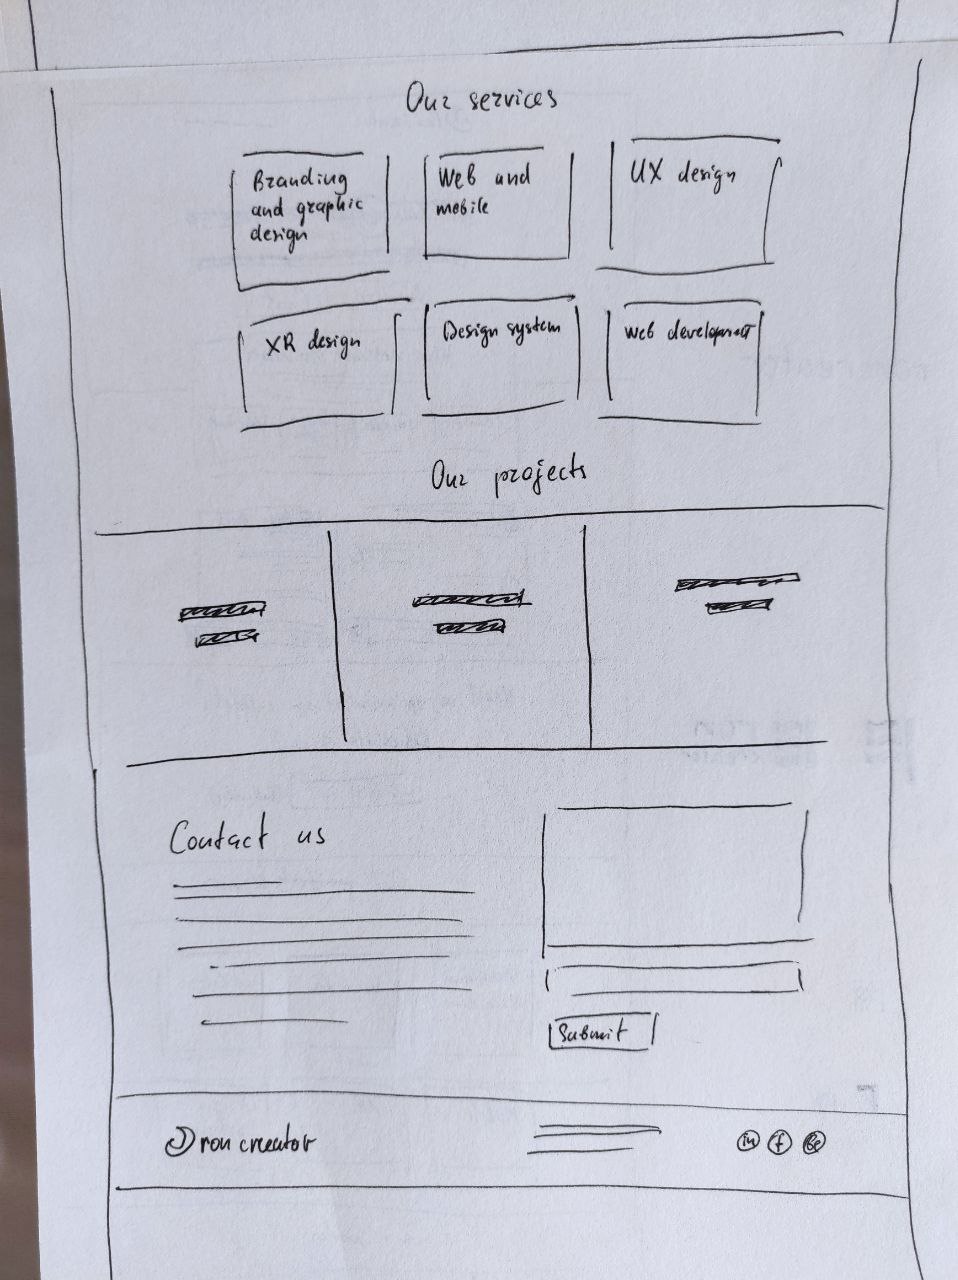 Our services
Branding
and graphic
design
Web and
mobile
UX design
XR design
Design system
Web development
Our projects
Contact us
Submit
ron creator
in
f
Be